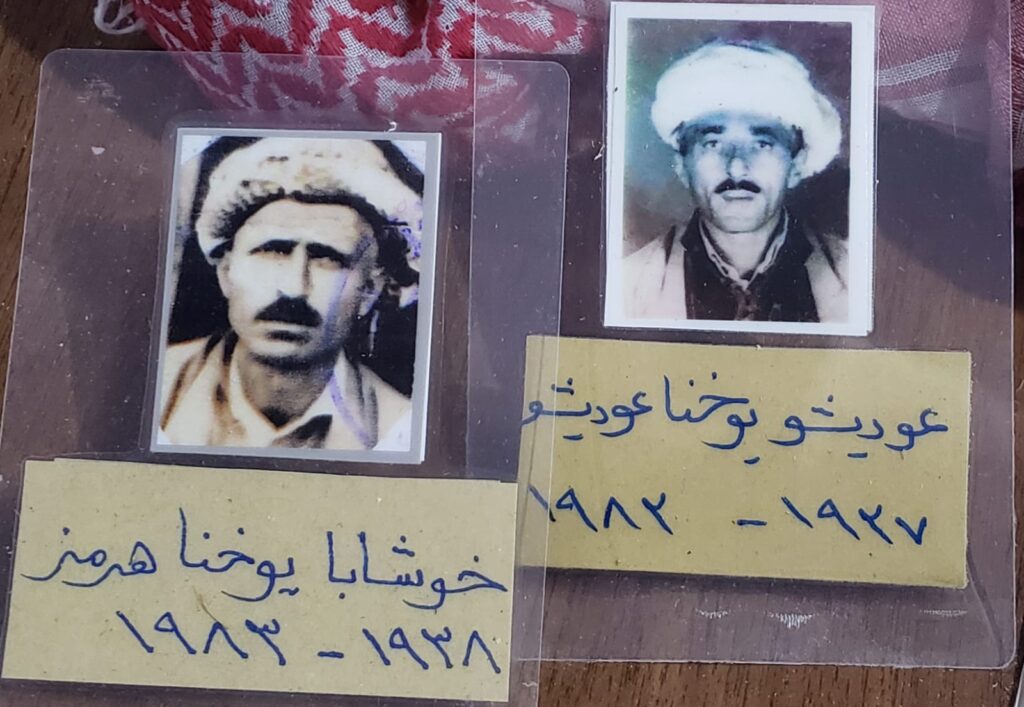 عوديشو يوخنا عوديشو
١٩٢٧ - ١٩٨٢
خوشابا يوخنا هرمز
١٩٣٨ - ١٩٨٣